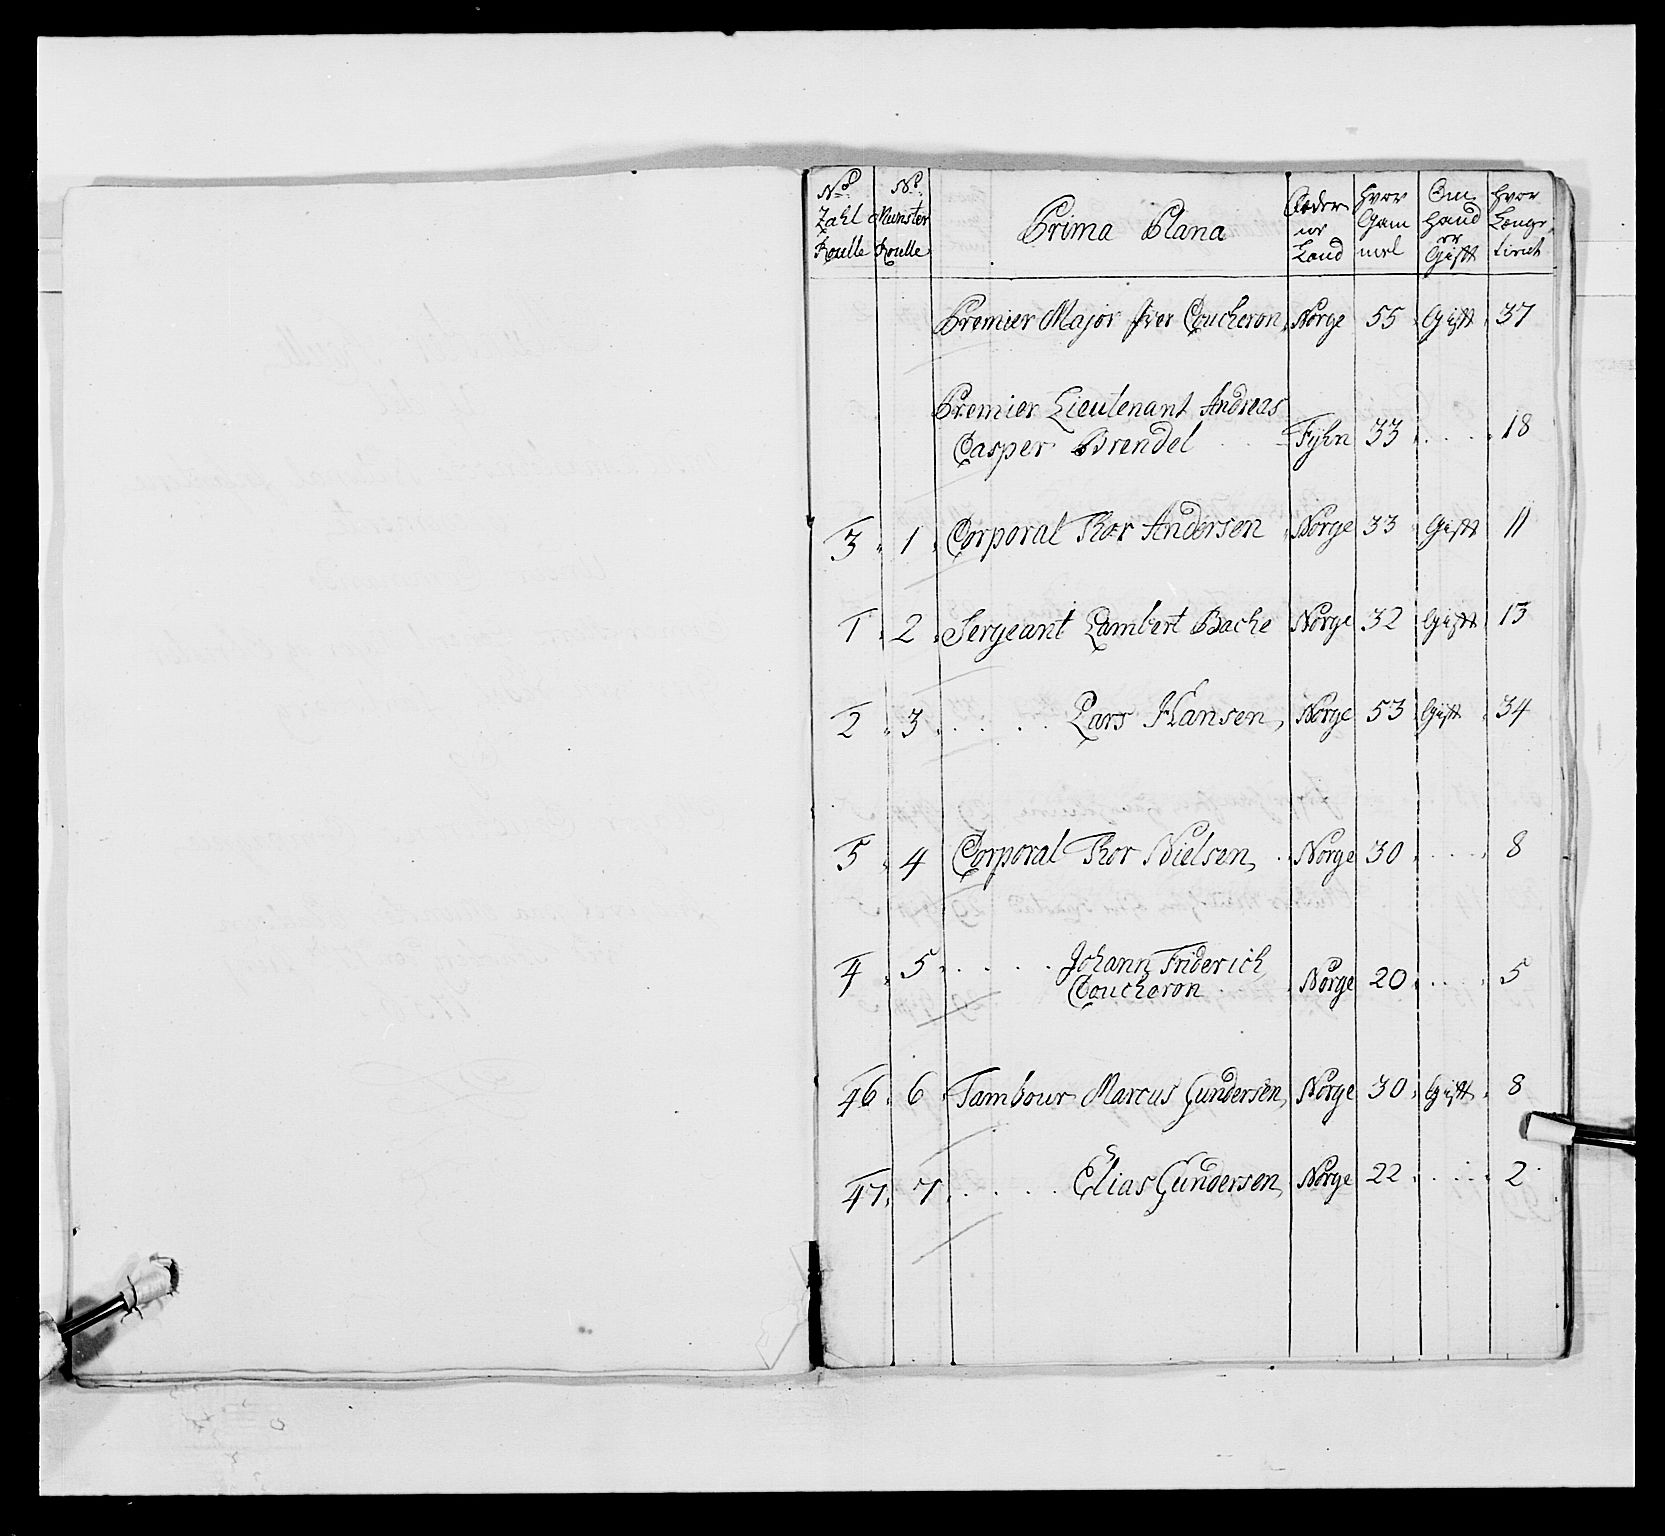 No. No. Prima Plana Føder Hvor Om Hvor
Zahl Munster ne Gam hand Længe
Roulle Roulle Land mel er Gift tient
Premier Major Iver Coucheron, Norge 55 Gift 37
Premier Lieutenant Andreas
Casper Brendel Fÿhn 33 18
3 1 Corporal Thor Andersen Norge 33 Gift 11
1 2 Sergeant Lambert Bache Norge 32 Gift 13
2 3 Lars Hansen, Norge 53 Gift 34
5 4 Corporal Thor Nielsen, Norge 30 8
4 5 Johann Friderich
Coucheron Norge 20 5
46 6 Tambour Marcus Gundersen, Norge 30 Gift 8
47 7 Elias Gundersen, Norge 22 2